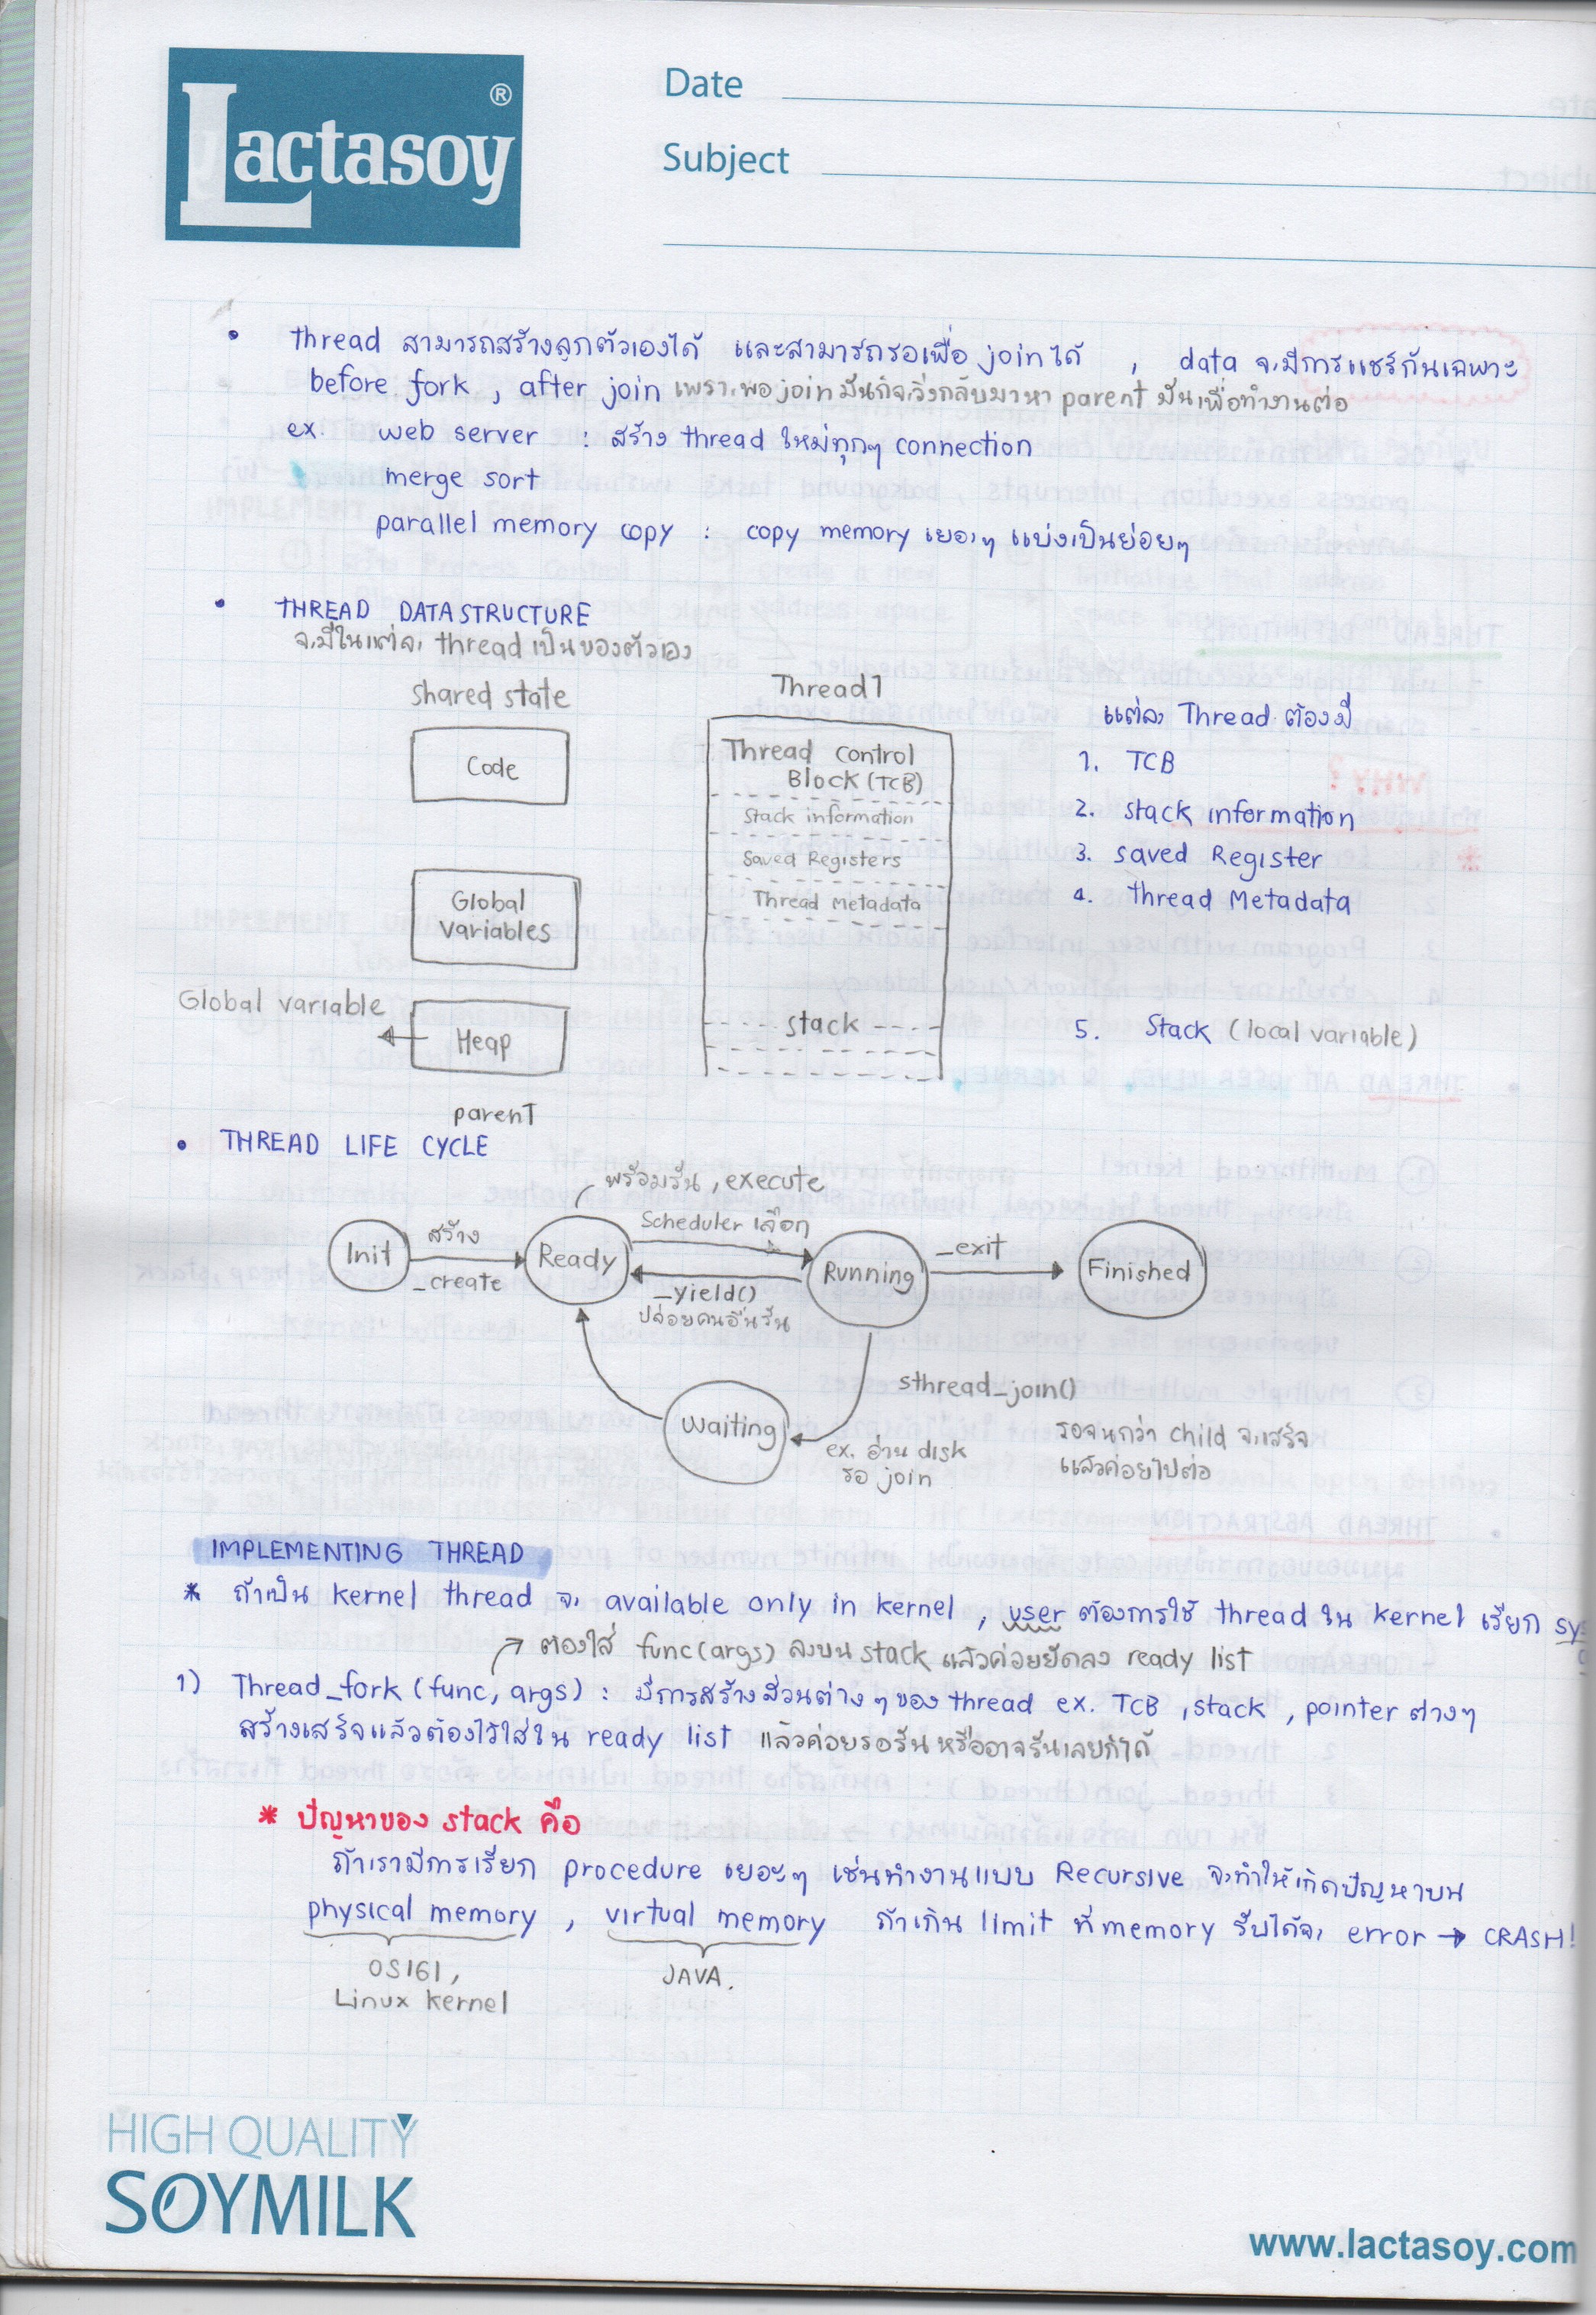 Lactasoy®
Date
Subject
• thread สามารถสร้างลูกตัวเองได้ และสามารถรอเพื่อ join ได้ , data จะมีการแชร์กันเฉพาะ
before fork , after join เพราะพอ join มันก็จะวิ่งกลับมาหา parent มันเพื่อทำงานต่อ
ex. web server : สร้าง thread ใหม่ทุกๆ connection
merge sort
parallel memory copy : copy memory เยอะๆ แบ่งเป็นย่อยๆ
• THREAD DATASTRUCTURE
จะมีในแต่ละ thread เป็นของตัวเอง
shared state
Code
Global
Variables
Global variable
Heap
parent
Thread1
Thread Control
Block (TCB)
Stack information
Saved Registers
Thread Metadata
stack
แต่ละ Thread ต้องมี
1. TCB
2. stack information
3. saved Register
4. thread Metadata
5. Stack (local variable)
• THREAD LIFE CYCLE
พร้อมรัน , execute
Init
สร้าง
_create
Ready
Scheduler เลือก
_yield()
ปล่อยคนอื่นรัน
Running
_exit
Finished
Waiting
ex. อ่าน disk
รอ join
sthread_join()
รอจนกว่า child จะเสร็จ
แล้วค่อยไปต่อ
IMPLEMENTING THREAD
* ถ้าเป็น kernel thread จะ available only in kernel , user ต้องการใช้ thread ใน kernel เรียก sy
ต้องใส่ func(args) ลงบน stack แล้วค่อยยัดลง ready list
1) Thread_fork (func, args) : มีการสร้างส่วนต่างๆของ thread ex. TCB , stack , pointer ต่างๆ
สร้างเสร็จแล้วต้องไว้ใส่ใน ready list แล้วค่อยรอรัน หรืออาจรันเลยก็ได้
* ปัญหาของ stack คือ
ถ้าเรามีการเรียก procedure เยอะๆ เช่นทำงานแบบ Recursive จะทำให้เกิดปัญหาบน
physical memory , virtual memory ถ้าเกิน limit ที่ memory รับได้จะ error → CRASH!
OS161,
Linux kernel
JAVA.
HIGH QUALITY
SOYMILK
www.lactasoy.com